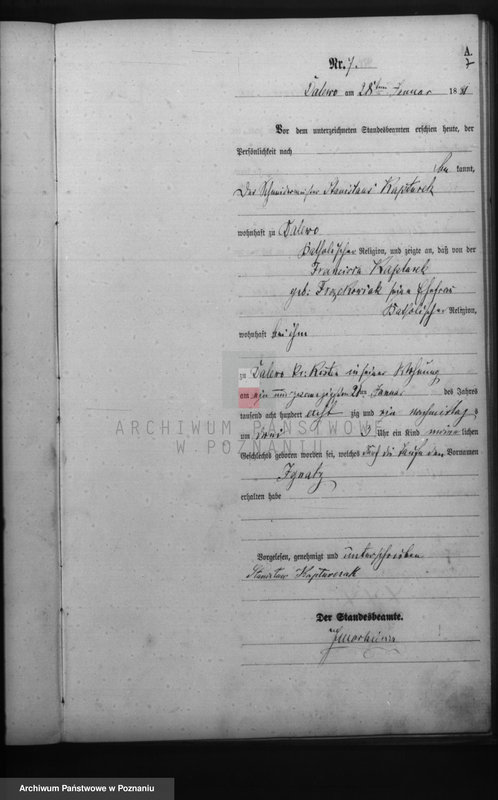 A.
Nr. 7.
Dalewo am 28ten Januar 1881
Vor dem unterzeichneten Standesbeamten erschien heute, der
Persönlichkeit nach
be kannt,
Der Schneidermeister Stanislaus Kapturek
wohnhaft zu Dalewo
Katholischer Religion, und zeigte an, daß von der
Kapturek
geb: seine Ehefrau
Katholischer Religion,
wohnhaft bei ihm
zu Dalewo Kr: Kosten in seiner Wohnung
am ein und zwanzigsten 21ten Januar des Jahres
tausend acht hundert acht zig und ein Vormittags
um drei 3 Uhr ein Kind männ lichen
Geschlechts geboren worden sei, welches durch die Taufe den Vornamen
Ignatz
erhalten habe
Vorgelesen, genehmigt und unterschrieben
Stanisław
Der Standesbeamte.
ARCHIWUM PAŃSTWOWE
W POZNANIU
Archiwum Państwowe w Poznaniu